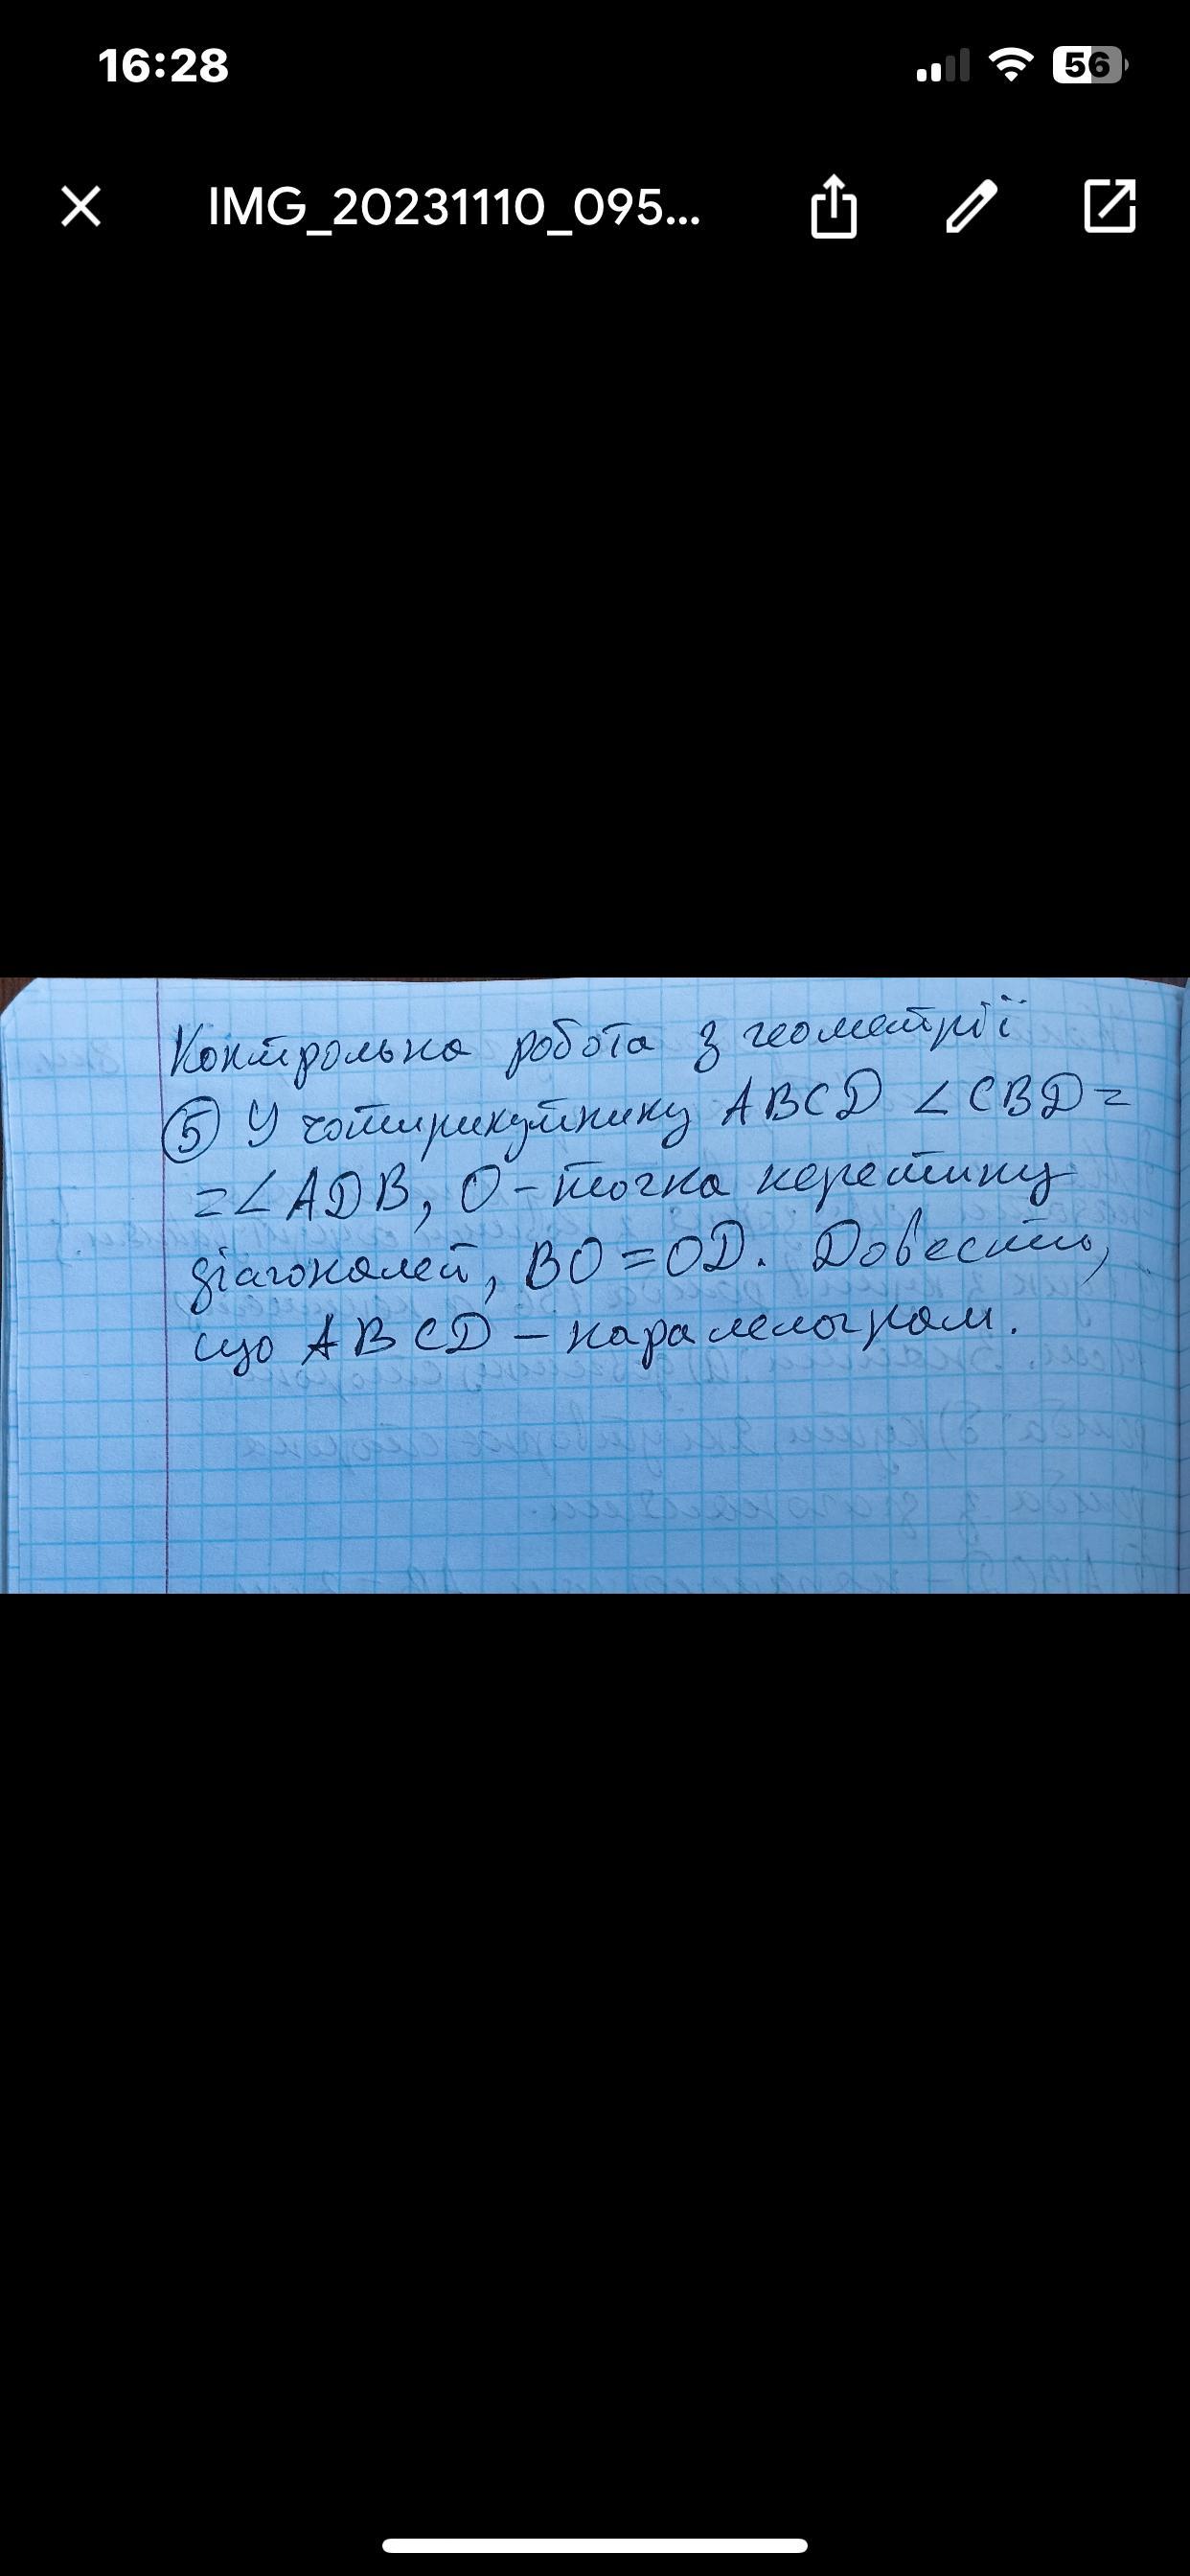 16:28
56
IMG_20231110_095...
Контрольна робота з геометрії
5 У чотирикутнику ABCD ∠CBD=
=∠ADB, O-точка перетину
діагоналей, BO=OD. Довести,
що ABCD – паралелограм.